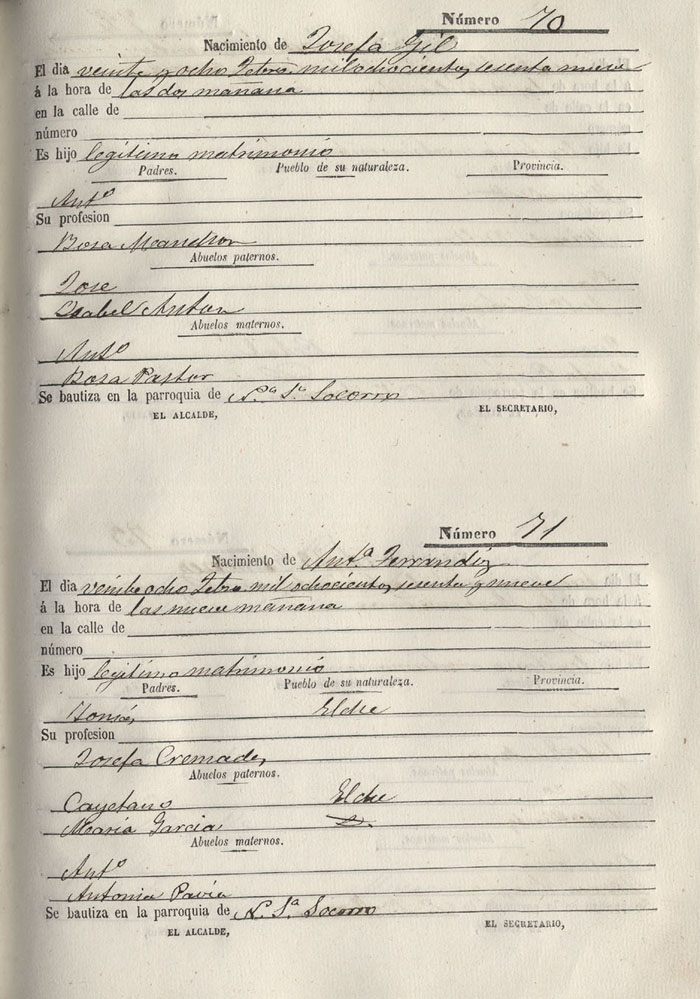 Número 70
Nacimiento de Josefa Gil
El dia veinte y ocho Febro mil ochocientos sesenta nueve
á la hora de las dos mañana
en la calle de
número
Es hijo legitimo matrimonio
Padres. Pueblo de su naturaleza. Provincia.
Anto
Su profesion
Rosa
Abuelos paternos.
Jose
Isabel Anton
Abuelos maternos.
Anto
Rosa Pastor
Se bautiza en la parroquia de N.a S.a Socorro
EL ALCALDE, EL SECRETARIO,
Número 71
Nacimiento de Ant.a Ferrandiz
El dia veinte ocho Febro mil ochocientos sesenta y nueve
á la hora de las nueve mañana
en la calle de
número
Es hijo legitimo matrimonio
Padres. Pueblo de su naturaleza. Provincia.
Tomás Elche
Su profesion
Josefa Cremades
Abuelos paternos.
Cayetano Elche
Maria Garcia
Abuelos maternos.
Anto
Antonia Pavia
Se bautiza en la parroquia de N. S.a Socorro
EL ALCALDE, EL SECRETARIO,